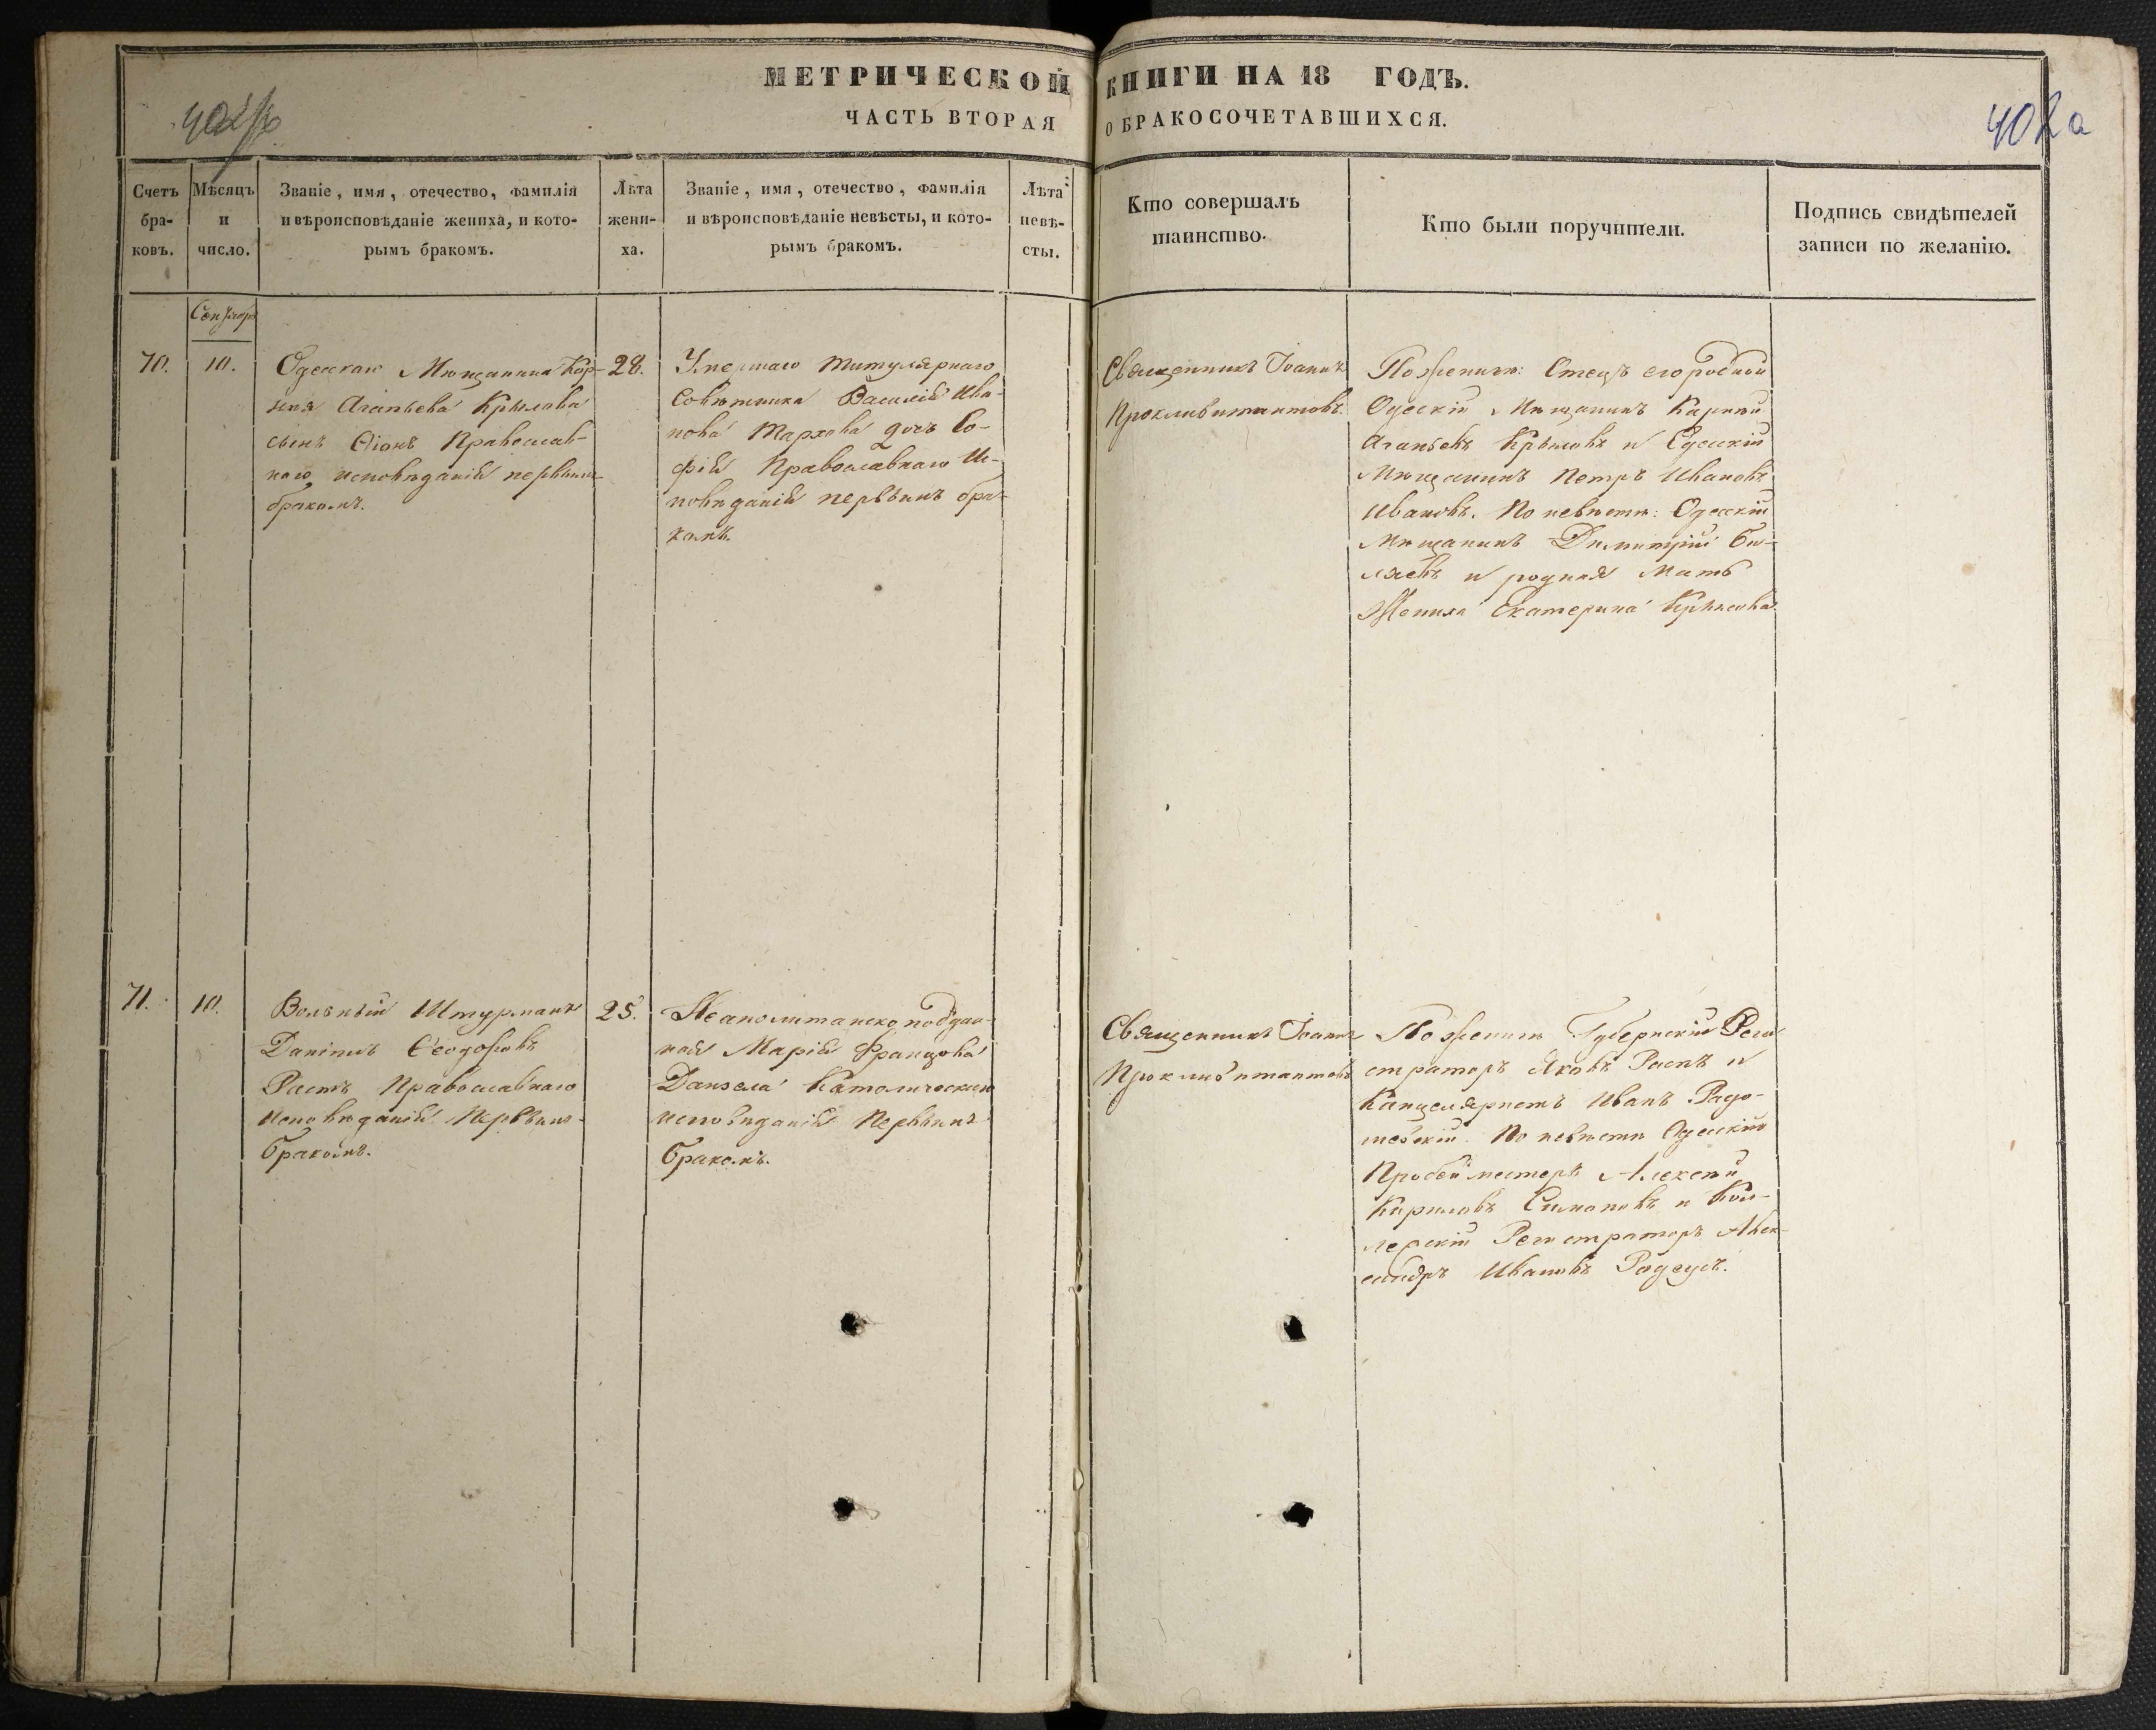 МЕТРИЧЕСКОЙ КНИГИ НА 18 ГОДЪ.
ЧАСТЬ ВТОРАЯ О БРАКОСОЧЕТАВШИХСЯ.
402а
Счетъ бра-ковъ.
Мѣсяцъ и число.
Званіе, имя, отечество, фамилія
и вѣроисповѣданіе жениха, и кото-
рымъ бракомъ.
Лѣта жени-ха.
Званіе, имя, отечество, фамилія
и вѣроисповѣданіе невѣсты, и кото-
рымъ бракомъ.
Лѣта невѣ-сты.
Кто совершалъ
таинство.
Кто были поручители.
Подпись свидѣтелей
записи по желанію.
70.
10.
Одескаго Мѣщанина Кар-
пія Агапьева Крылова
сынъ Ѳіонъ Православ-
наго исповѣданія первымъ
бракомъ.
28.
Умершаго титулярнаго
Совѣтника Василія Ива-
нова Маркова дочь Со-
фія Православнаго Ис-
повѣданія первымъ бра-
комъ.
Священникъ Іоаннъ
По женихѣ: Отецъ его родной
Одескій Мѣщанинъ Карпій
Агапьевъ Крыловъ и Одескій
Мѣщанинъ Петръ Ивановъ
Ивановъ. По невѣстѣ: Одескій
Мѣщанинъ Димитрій Бѣ-
ляевъ и родная Мать
Жениха Екатерина Крылова
71.
10.
Вольный Штурманъ
Даніилъ Ѳеодоровъ
Православнаго
исповѣданія Первымъ
бракомъ.
25.
Неаполитанско подан-
ная Марія Францова
Католическаго
исповѣданія Первымъ
бракомъ.
Священникъ Іоаннъ
По женихѣ Губернскій Реги-
страторъ Яковъ и
Канцеляристъ Иванъ
По невѣстѣ Одескій
Алексѣй
Карповъ Симоновъ и Кол-
лежскій Регистраторъ Алек-
сандръ Ивановъ